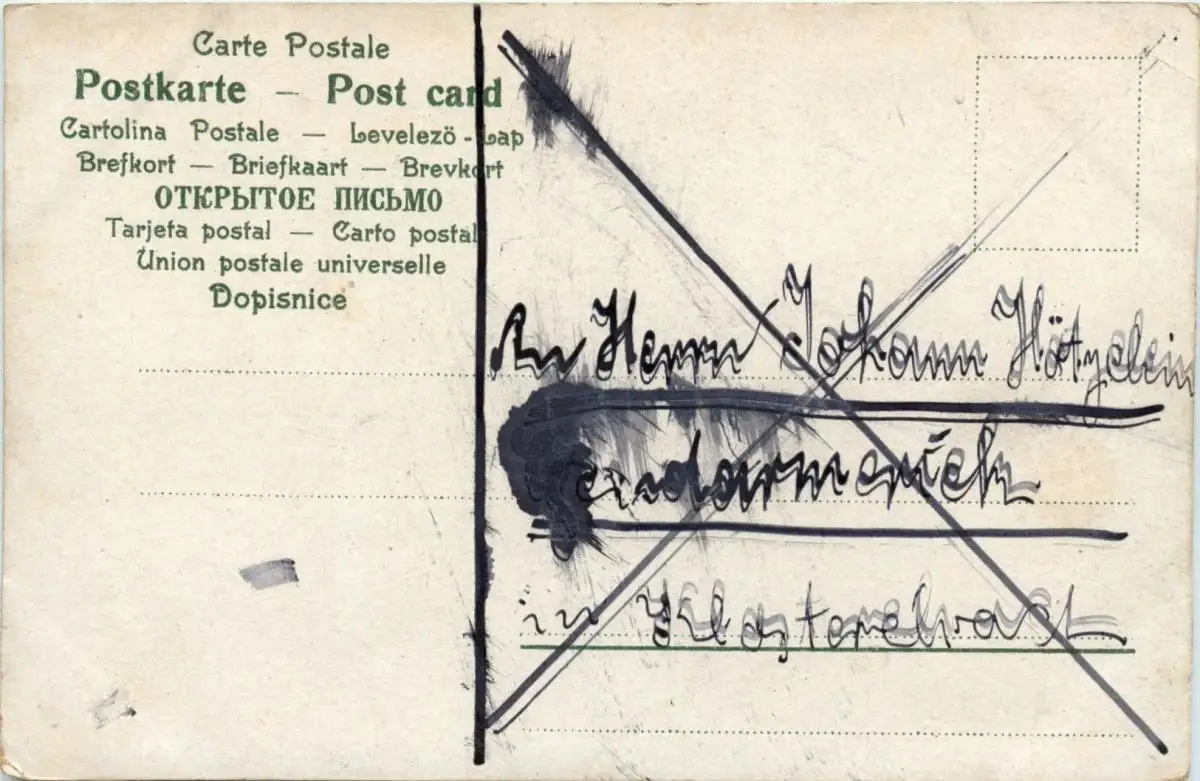 Carte Postale
Postkarte — Post card
Cartolina Postale — Levelező-Lap
Brefkort — Briefkaart — Brevkort
ОТКРЫТОЕ ПИСЬМО
Tarjeta postal — Carto postal
Union postale universelle
Dopisnice
An Herrn Johann Hötzelein
in